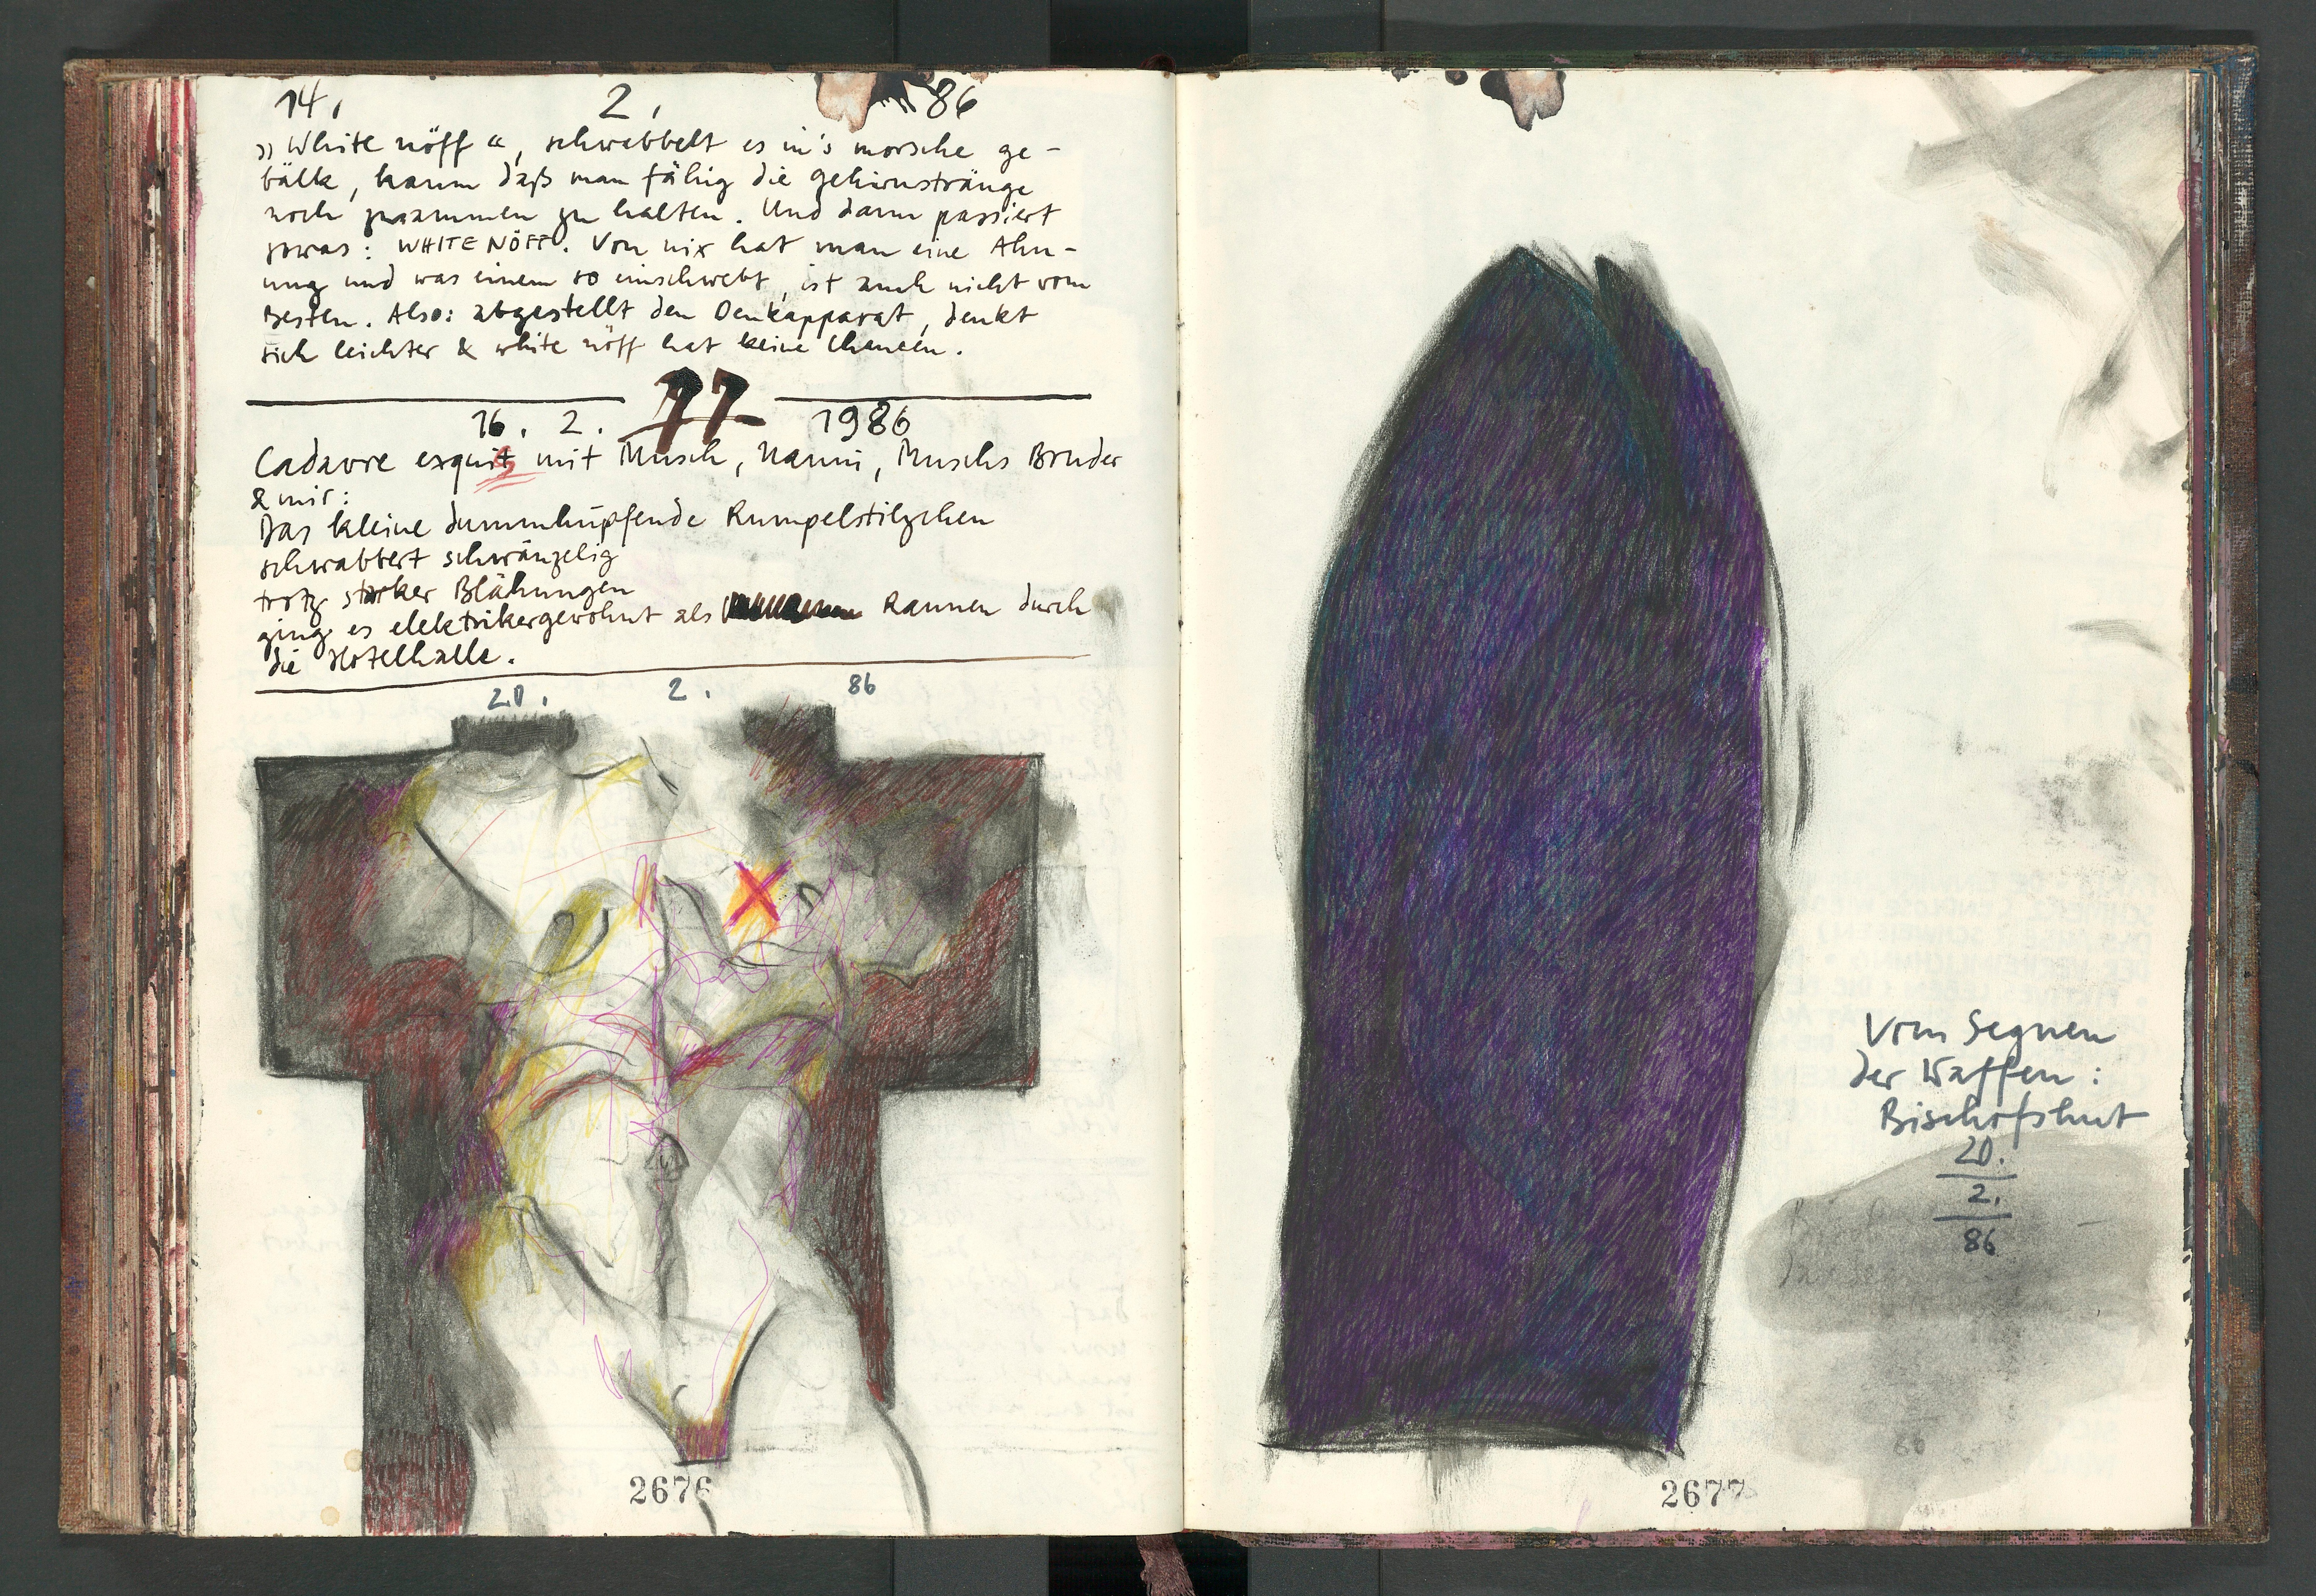 14. 2. 86
»White nöff«, schwabbelt es in's morsche ge-
bälk, kaum daß man fähig die gehirnstränge
noch zusammen zu halten. Und dann passiert
sowas: WHITE NÖFF. Von nix hat man eine Ahn-
ung und was einem so einschwebt, ist auch nicht vom
Besten. Also: abgestellt den Denkapparat, denkt
sich leichter & white nöff hat keine Chancen.
77
16. 2. 1986
Cadavre exquis mit Musch, Nanni, Muschs Bruder
& mir:
Das kleine dummhüpfende Rumpelstilzchen
schwabbert schwänzelig
trotz starker Blähungen
ging es elektrikergewohnt als Rannen durch
die Hotelhalle.
20. 2. 86
2676
Vom Segnen
der Waffen:
Bischofshut
20.
2.
86
2677